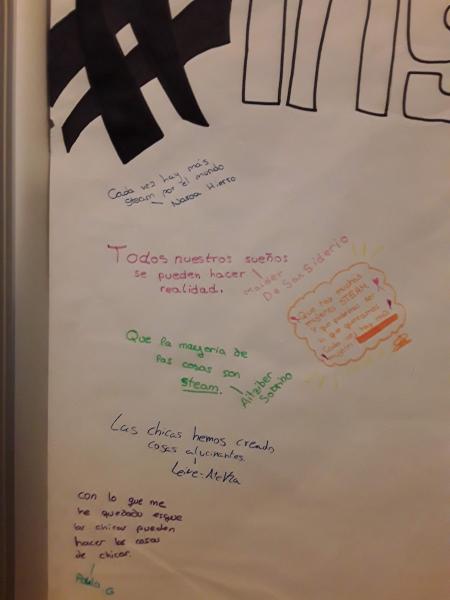 #INS
Cada vez hay más
Steam por el mundo
Naroa Hierro
Todos nuestros sueños
se pueden hacer
realidad.
Maider
De San Siderio
Que hay muchas
mujeres STEAM
y que podemos ser
lo que queramos
Cada vez hay más
mujeres
Que la mayoria de
las cosas son
Steam.
Aitziber
Sobrino
Las chicas hemos creado
cosas alucinantes.
Leire
con lo que me
he quedado esque
las chicas pueden
hacer las cosas
de chicos.
Paula G